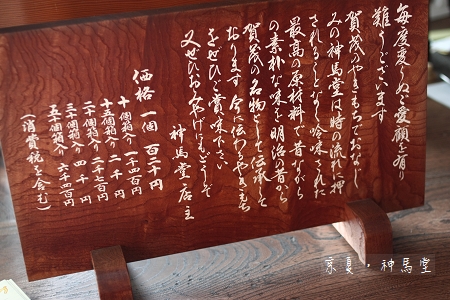 毎度変らぬご愛顧を有り
難うございます
賀茂のやきもちでおなじ
みの神馬堂は時の流れに押
されることなく吟味された
最高の原材料で昔ながら
の素朴な味を明治の昔から
賀茂の名物として伝承して
おります 今に伝わるやきもち
をぜひご賞味下さい
又ぜひおみやげにもどうぞ
神馬堂店主
価格 一個 百二十円
十個箱入り 千二百円
十五個箱入り 二千円
二十個箱入り 二千七百円
三十個箱入り 四千円
(消費税を含む)
京夏・神馬堂